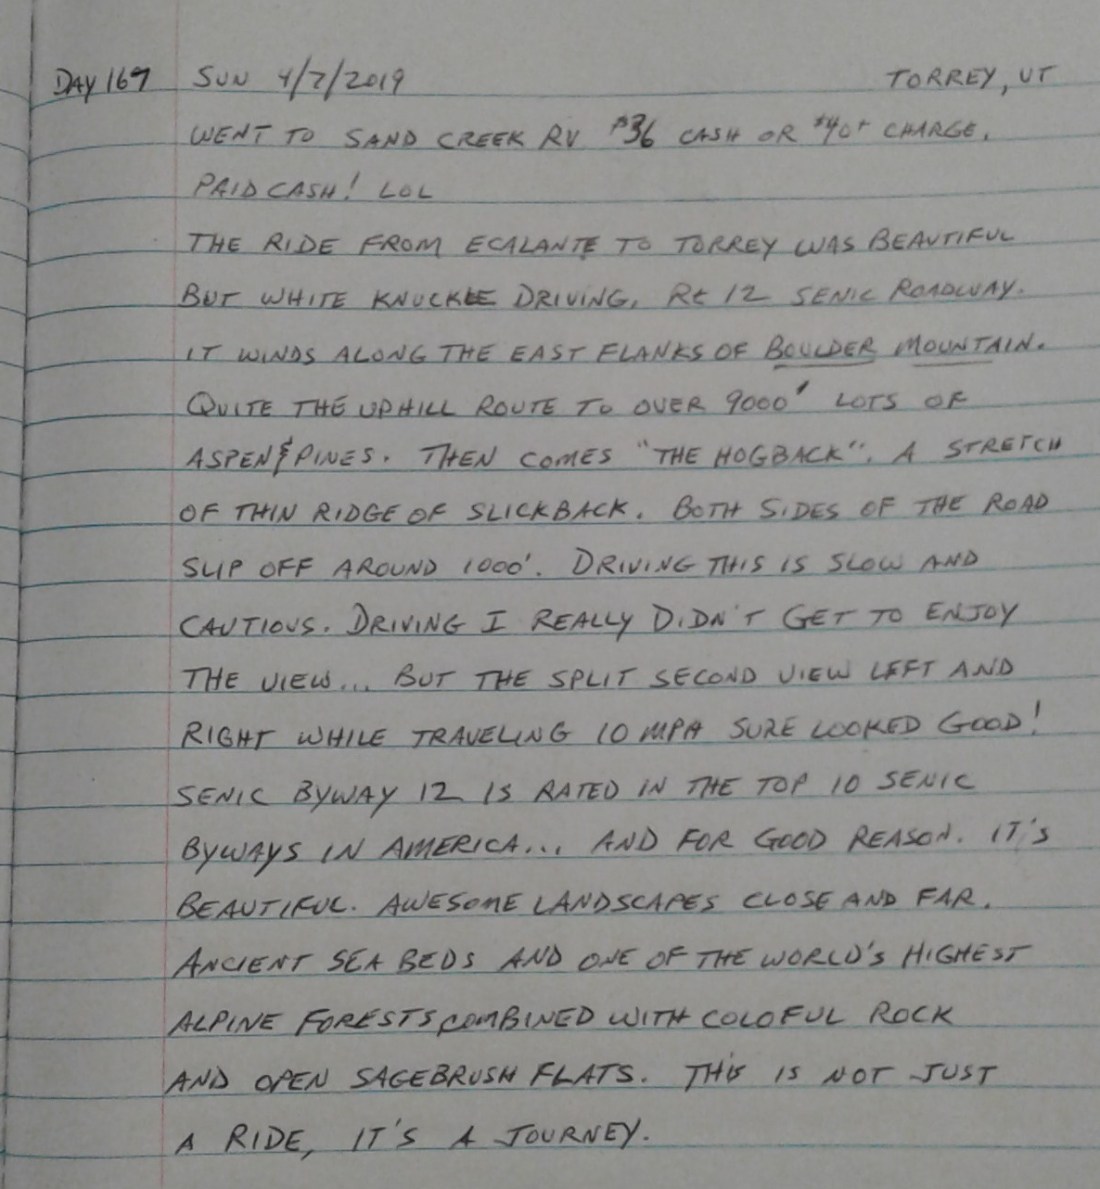 DAY 169 SUN 4/7/2019 TORREY, UT
WENT TO SAND CREEK RV $36 CASH OR $40+ CHARGE.
PAID CASH! LOL
THE RIDE FROM ECALANTE TO TORREY WAS BEAUTIFUL
BUT WHITE KNUCKLE DRIVING. Rt 12 SENIC ROADWAY.
IT WINDS ALONG THE EAST FLANKS OF BOULDER MOUNTAIN.
QUITE THE UPHILL ROUTE TO OVER 9000' LOTS OF
ASPEN & PINES. THEN COMES "THE HOGBACK". A STRETCH
OF THIN RIDGE OF SLICKBACK. BOTH SIDES OF THE ROAD
SLIP OFF AROUND 1000'. DRIVING THIS IS SLOW AND
CAUTIOUS. DRIVING I REALLY DIDN'T GET TO ENJOY
THE VIEW... BUT THE SPLIT SECOND VIEW LEFT AND
RIGHT WHILE TRAVELING 10 MPH SURE LOOKED GOOD!
SENIC BYWAY 12 IS RATED IN THE TOP 10 SENIC
BYWAYS IN AMERICA... AND FOR GOOD REASON. IT'S
BEAUTIFUL. AWESOME LANDSCAPES CLOSE AND FAR.
ANCIENT SEA BEDS AND ONE OF THE WORLD'S HIGHEST
ALPINE FORESTS COMBINED WITH COLOFUL ROCK
AND OPEN SAGEBRUSH FLATS. THIS IS NOT JUST
A RIDE, IT'S A JOURNEY.